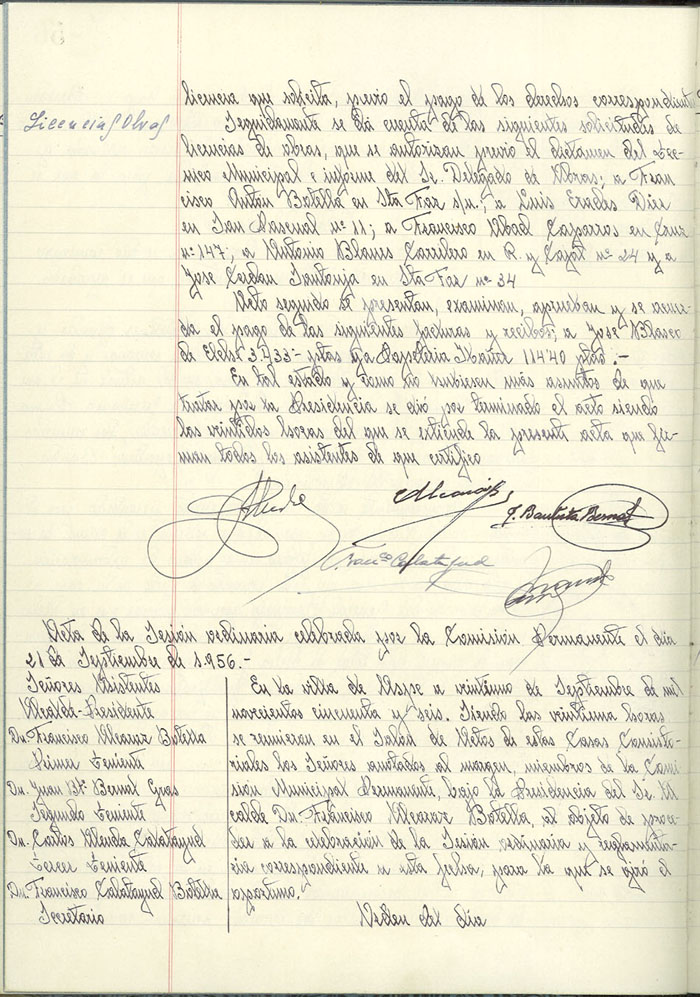 licencia que solicita, previo el pago de los derechos correspondient
Licencias Obras
Seguidamente se dá cuenta de las siguientes solicitudes de
licencias de obras, que se autorizan previo el dictamen del Tec-
nico Municipal e informe del Sr. Delegado de Obras; a Fran
cisco Antón Botella en Sta Faz s/n.; a Luis Erades Diez
en San Pascual nº 11; a Francisco Abad Casparros en Cruz
nº 147; a Antonio Blanes Carrilero en R. y Cajal nº 24 y a
Jose Cerdan Santonja en Sta Faz nº 34
Acto seguido se presentan, examinan, aprueban y se acuer-
da el pago de las siguientes facturas y recibos; a Jose Blasco
de Elche 3.933'- ptas y a Papeleria 114'40 ptas.-
En tal estado y como no hubiesen más asuntos de que
tratar por la Presidencia se dió por terminado el acto siendo
las veintidos horas del que se extiende la presente acta que fir-
man todos los asistentes de que certifico
J. Bautista Bernal
Franco Calatayud
Acta de la Sesión ordinaria celebrada por la Comisión Permanente el día
21 de Septiembre de 1.956.-
Señores Asistentes
Alcalde-Presidente
Dn. Francisco Alcaraz Botella
Primer Teniente
Dn. Juan Bta. Bernal Gras
Segundo Teniente
Dn. Carlos Calatayud
Tercer Teniente
Dn. Francisco Calatayud Botella
Secretario
En la villa de Aspe a veintiuno de Septiembre de mil
novecientos cincuenta y seis. Siendo las veintiuna horas
se reunieron en el Salón de Actos de estas Casas Consisto-
riales los Señores anotados al margen, miembros de la Comi
sión Municipal Permanente, bajo la Presidencia del Sr. Al
calde Dn. Francisco Alcaraz Botella, al objeto de proce-
der a la celebración de la Sesión ordinaria y reglamenta-
ria correspondiente a esta fecha, para la que se giró el
oportuno.
Orden del día